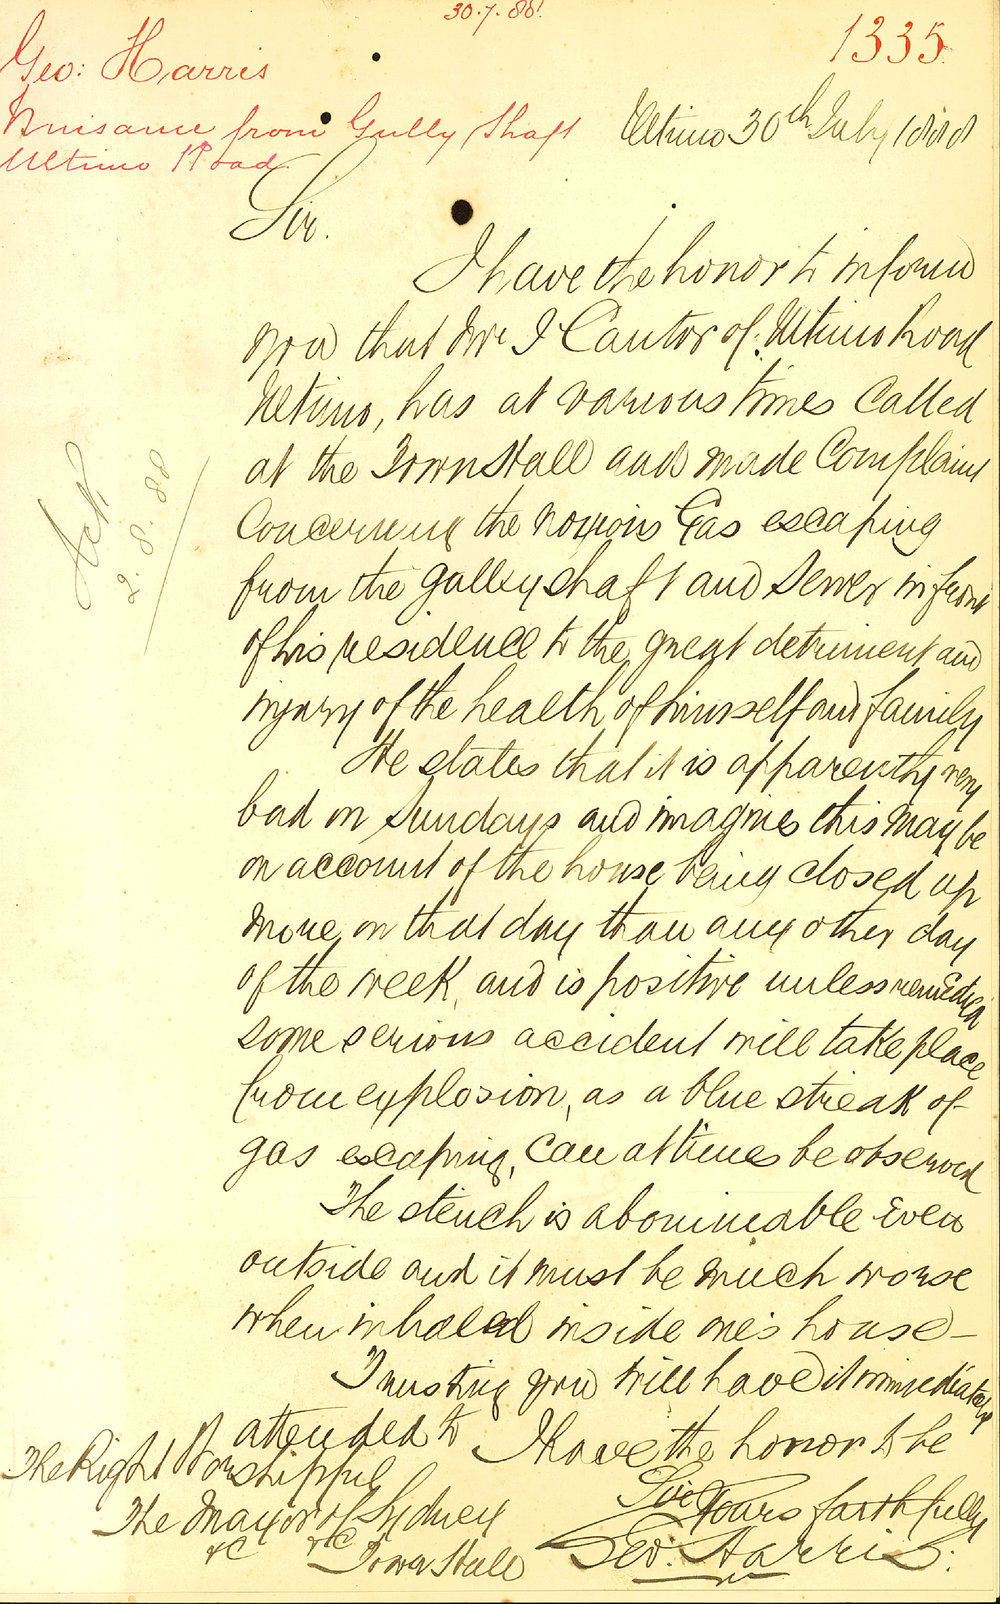 30.7.88.
1335
Geo: Harris
Nuisance from Gully Shaft
Ultimo Road
Ultimo 30th July 1888
Sir.
I have the honor to inform
you that Mr I Cantor of Ultimo Road
Ultimo, has at various times Called
at the Town Hall and made Complaint
Concerning the noxious Gas escaping
from the gulley shaft and Sewer in front
of his residence to the great detriment and
injury of the health of himself and family
He states that it is apparently very
bad on Sundays and imagines this may be
on account of the house being closed up
more on that day than any other day
of the week, and is positive unless remedied
some serious accident will take place
from explosion, as a blue streak of
gas escaping, can at times be observed
The stench is abominable Even
outside and it must be much worse
when inhaled inside one's house –
Trusting you will have it immediately
attended to
I have the honor to be
Sir
Yours faithfully
Geo. Harris.
The Right Worshipful
The Mayor of Sydney
&c &c
Town Hall
Ack
2.8.88